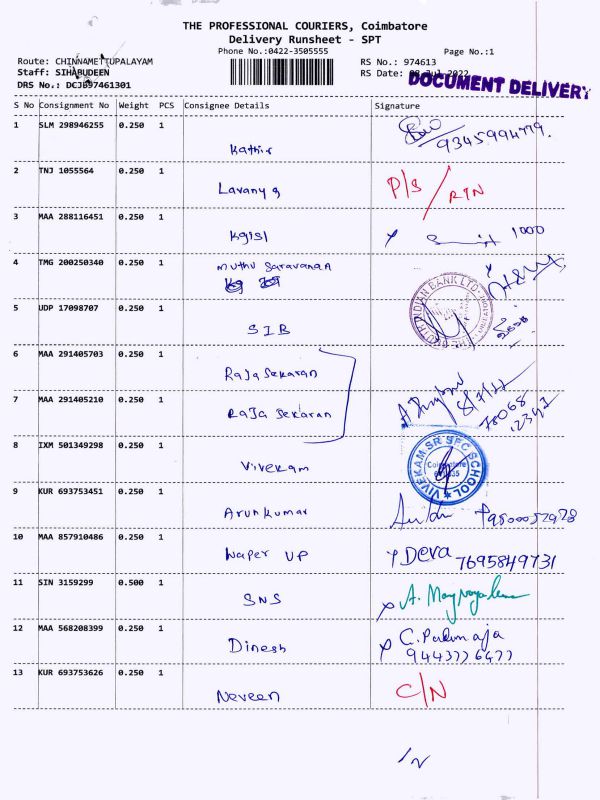 THE PROFESSIONAL COURIERS, Coimbatore
Delivery Runsheet - SPT
Phone No.:0422-3505555
Page No.:1
Route: CHINNAMETTUPALAYAM
RS No.: 974613
Staff: SIHABUDEEN
RS Date: 08 Jul 2022
DOCUMENT DELIVERY
DRS No.: DCJB97461301
S No Consignment No Weight PCS Consignee Details Signature
1 SLM 298946255 0.250 1
Kathir
9345994779.
2 TNJ 1055564 0.250 1
Lavanya
P/S / RTN
3 MAA 288116451 0.250 1
Kgisl
1000
4 TMG 200250340 0.250 1
Muthu Saravanan
5 UDP 17098707 0.250 1
SIB
THE SOUTH INDIAN BANK LTD.
6 MAA 291405703 0.250 1
Rajasekaran
7 MAA 291405210 0.250 1
Raja Sekaran
8/7/22
78068
12342
8 IXM 501349298 0.250 1
Vivekam
VIVEKAM SR SEC SCHOOL
Coimbatore
9 KUR 693753451 0.250 1
Arunkumar
10 MAA 857910486 0.250 1
Waper UP
Deva 7695849731
11 SIN 3159299 0.500 1
SNS
12 MAA 568208399 0.250 1
Dinesh
C. Padmaja
9443776477
13 KUR 693753626 0.250 1
Neveen
C/N